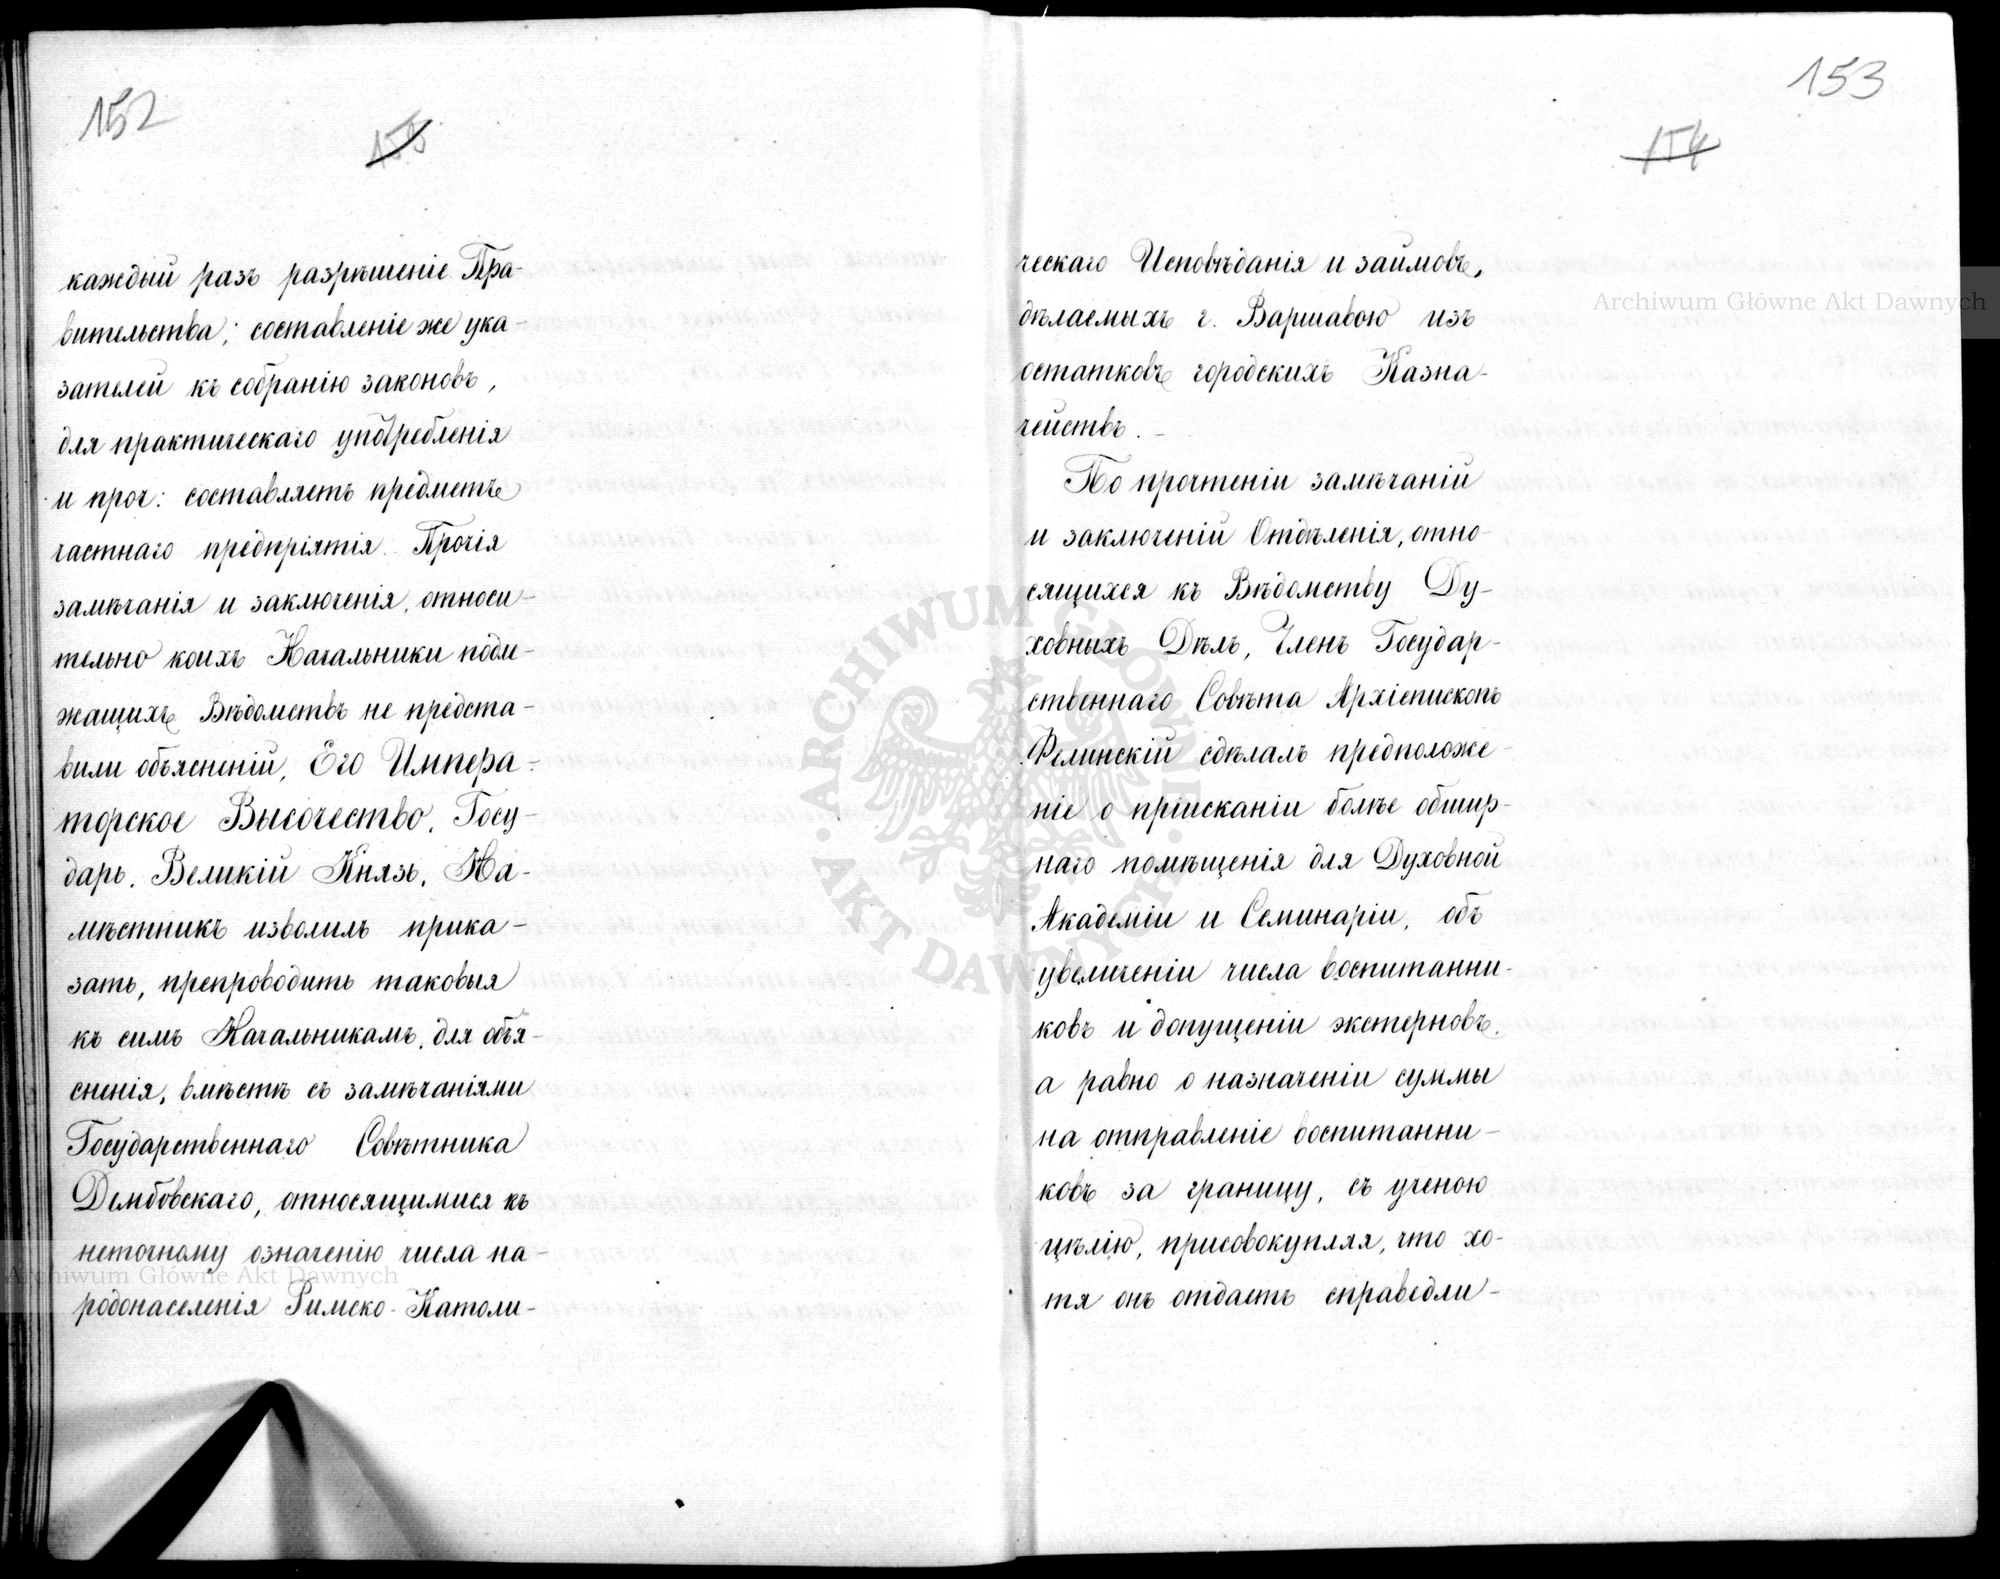 152
каждый разъ разрѣшеніе Пра-
вительства; составленіе же ука-
зателей къ собранію законовъ,
для практическаго употребленія
и проч: составляетъ предметъ
частнаго предпріятія. Прочія
замѣчанія и заключенія, относи-
тельно коихъ Начальники подле-
жащихъ Вѣдомствъ не предста-
вили объясненій, Его Импера-
торское Высочество, Госу-
дарь, Великій Князь, На-
мѣстникъ изволилъ прика-
зать, препроводить таковыя
къ симъ Начальникамъ, для объя-
сненія, вмѣстѣ съ замѣчаніями
Государственнаго Совѣтника
Дембовскаго, относящимися къ
неточному означенію числа на-
родонаселенія Римско-Католи-
Archiwum Główne Akt Dawnych
153
154
ческаго Исповѣданія и займовъ,
дѣлаемыхъ г. Варшавою изъ
остатковъ городскихъ Казна-
чействъ.-
По прочтеніи замѣчаній
и заключеній Отдѣленія, отно-
сящихся къ Вѣдомству Ду-
ховныхъ Дѣлъ, Членъ Государ-
ственнаго Совѣта Архіепископъ
Фелинскій сдѣлалъ предположе-
ніе о пріисканіи болѣе обшир-
наго помѣщенія для Духовной
Академіи и Семинаріи, объ
увеличеніи числа воспитанни-
ковъ и допущеніи экстерновъ,
а равно о назначеніи суммы
на отправленіе воспитанни-
ковъ за границу, съ ученою
цѣлію, присовокупляя, что хо-
тя онъ отдаетъ справедли-
Archiwum Główne Akt Dawnych
ARCHIWUM GŁÓWNE
AKT DAWNYCH